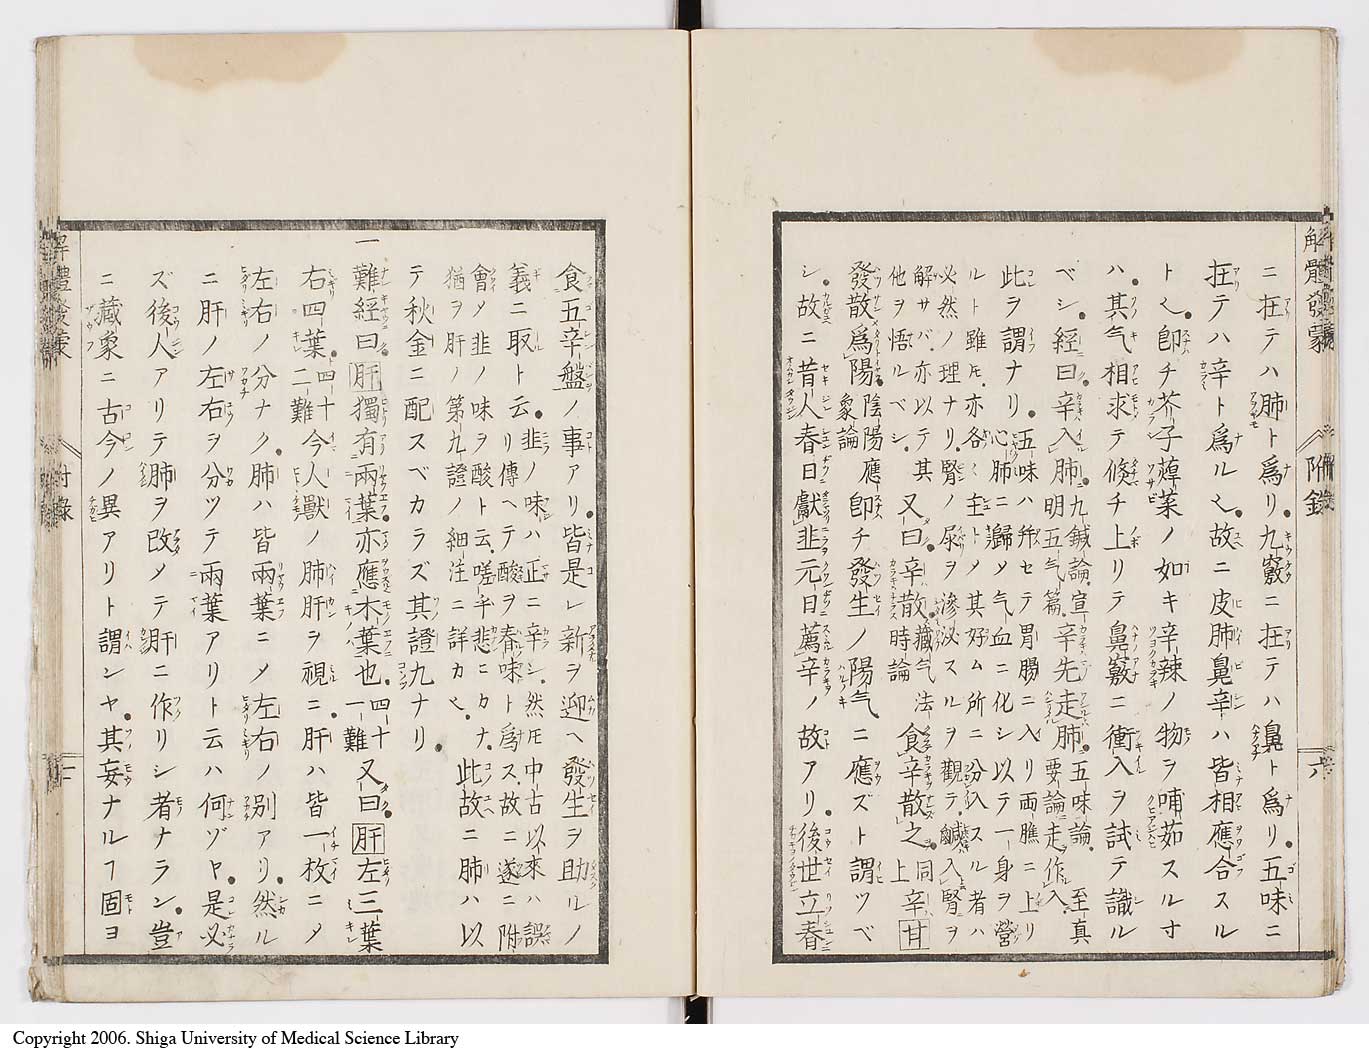 解體發蒙
附錄
六
ニ在テハ肺ト爲リ。九竅ニ在テハ鼻ト爲リ。五味ニ
在テハ辛ト爲ル也。故ニ皮肺鼻辛ハ皆相應合スル
ト也。卽チ芥子蔊菜ノ如キ辛辣ノ物ヲ哺茹スル寸
ハ。其气相求テ倐チ上リテ鼻竅ニ衝入ヲ試テ識ル
ベシ。經曰。辛入肺。九鍼論。宣明五气篇。辛先走肺。五味論。至眞要論走作入。
此ヲ謂ナリ。五味ハ幷セテ胃腸ニ入リ両膲ニ上リ心肺ニ歸メ气血ニ化シ以テ一身ヲ營
ルト雖ドモ。亦各ニ至トノ其好ム所ニ分入スル者ハ必然ノ理ナリ。腎ノ尿ヲ滲泌スルヲ觀テ。鹹入腎ヲ
解サバ。亦以テ其他ヲ悟ルベシ。又曰。辛散。藏气法時論食辛散之。同上辛甘
發散爲陽。陰陽應象論卽チ發生ノ陽气ニ應ズト謂ツベ
シ。故ニ昔人春日獻韭元日薦辛ノ故アリ。後世立春
食五辛盤ノ事アリ。皆是レ新ヲ迎ヘ發生ヲ助ルノ
義ニ取ト云リ。韭ノ味ハ正ニ辛シ。然ドモ中古以來ハ誤傳ヘテ酸ヲ春味ト爲ス。故ニ遂ニ附
會メ韭ノ味ヲ酸ト云。嗟乎悲ニカナ。猶ヲ肝ノ第九證ノ細注ニ詳カ也。此故ニ肺ハ以
テ秋金ニ配スベカラズ其證九ナリ。
一難經曰。肝獨有兩葉。亦應木葉也。四十一難又曰。肝左三葉
右四葉。四十二難今人獸ノ肺肝ヲ視ニ。肝ハ皆一枚ニメ
左右ノ分ナク。肺ハ皆兩葉ニメ左右ノ別アリ。然ル
ニ肝ノ左右ヲ分ツテ兩葉アリト云ハ何ゾヤ。是必
ズ後人アリテ肺ヲ改メテ肝ニ作リシ者ナラン。豈
ニ藏象ニ古今ノ異アリト謂ンヤ。其妄ナルヿ固ヨ
Copyright 2006. Shiga University of Medical Science Library